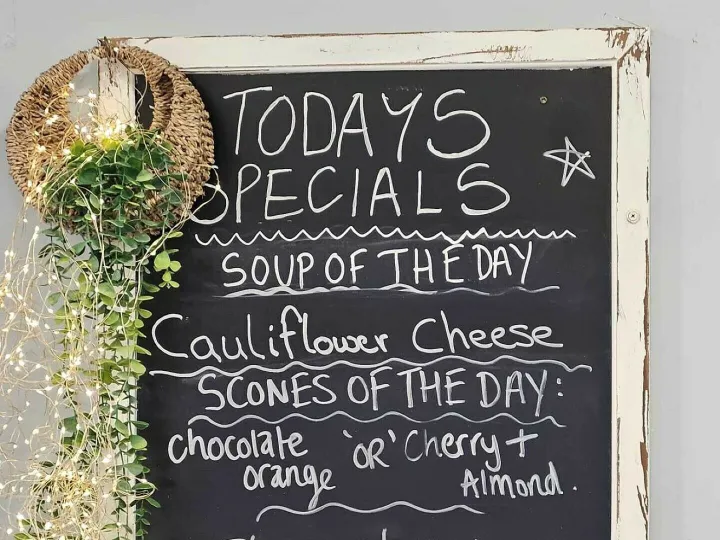 TODAYS
SPECIALS
SOUP OF THE DAY
Cauliflower Cheese
SCONES OF THE DAY:
chocolate 'OR' Cherry +
orange Almond.